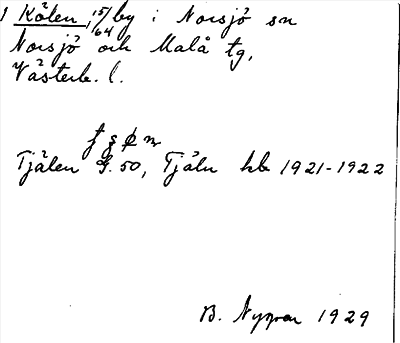 1 Kölen, 15/64 by i Norsjö sn
Norsjö och Malå tg,
Västerb. l.
Tjälen G. 50, Tjäln kb 1921-1922
B. Nygren 1929